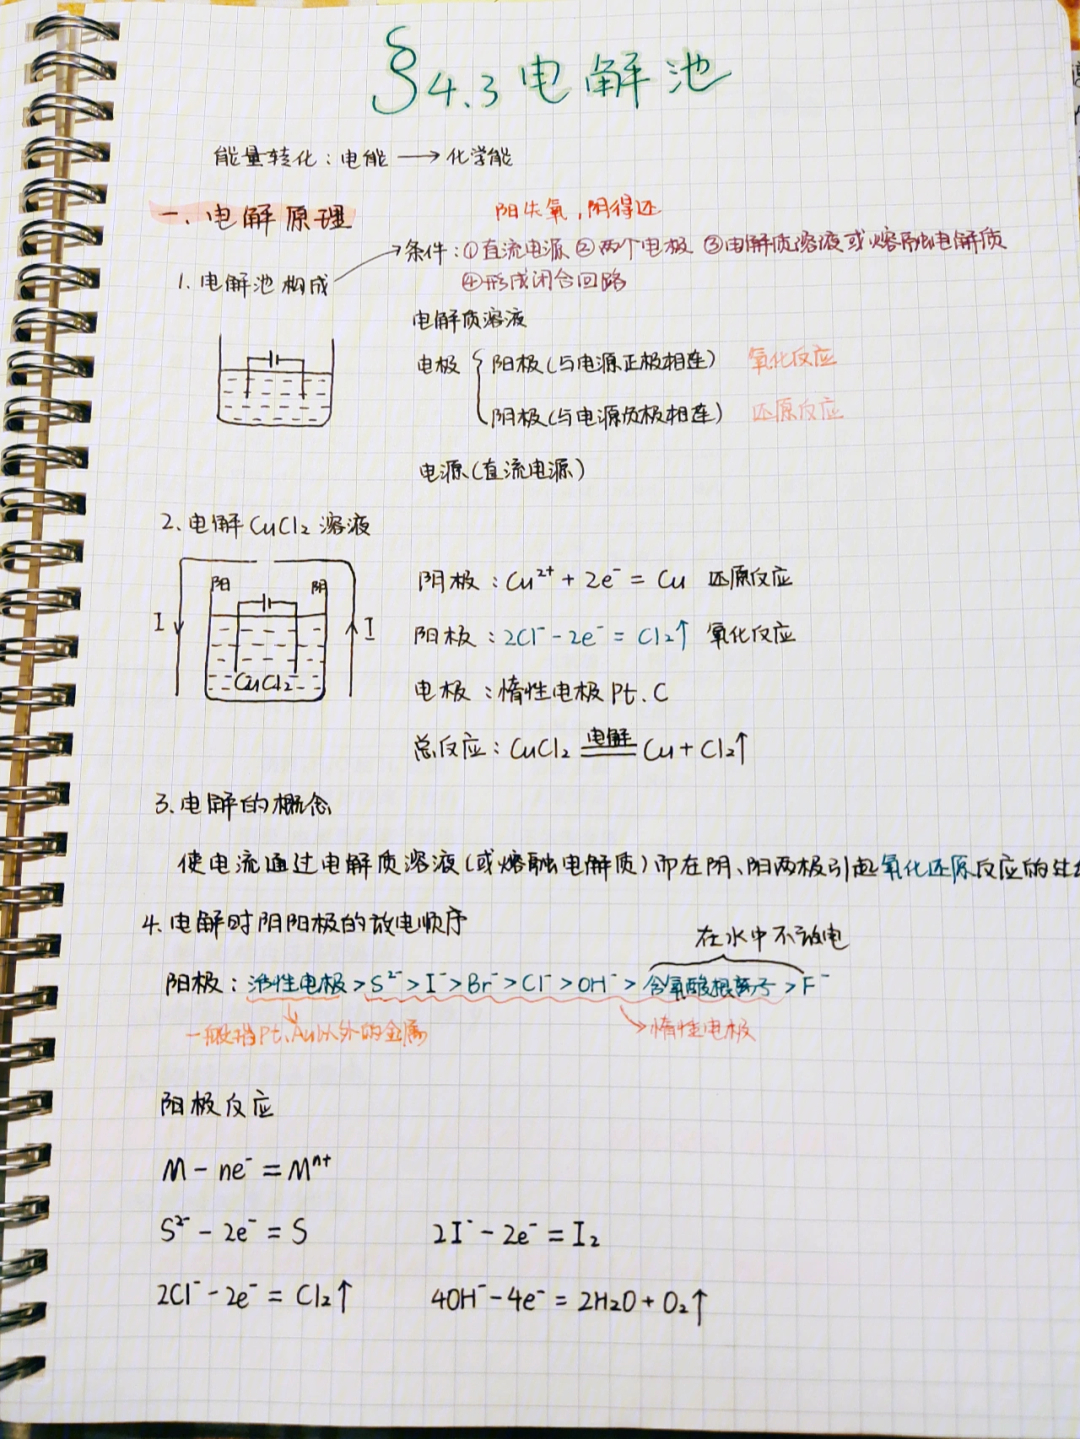 §4.3 电解池
能量转化：电能 → 化学能
一、电解原理
阳失氧，阴得还
→条件：①直流电源 ②两个电极 ③电解质溶液或熔融电解质
④形成闭合回路
1. 电解池构成
电解质溶液
电极 { 阳极(与电源正极相连) 氧化反应
阴极(与电源负极相连) 还原反应
电源(直流电源)
2. 电解CuCl₂溶液
阳 阴
I I
CuCl₂
阴极：Cu²⁺ + 2e⁻ = Cu 还原反应
阳极：2Cl⁻ - 2e⁻ = Cl₂↑ 氧化反应
电极：惰性电极 Pt、C
总反应：CuCl₂ 电解 Cu + Cl₂↑
3. 电解的概念
使电流通过电解质溶液(或熔融电解质)而在阴、阳两极引起氧化还原反应的
4. 电解时阴阳极的放电顺序
在水中不放电
阳极：活性电极 > S²⁻ > I⁻ > Br⁻ > Cl⁻ > OH⁻ > 含氧酸根离子 > F⁻
一般指Pt、Au以外的金属
→惰性电极
阳极反应
M - ne⁻ = Mⁿ⁺
S²⁻ - 2e⁻ = S 2I⁻ - 2e⁻ = I₂
2Cl⁻ - 2e⁻ = Cl₂↑ 4OH⁻ - 4e⁻ = 2H₂O + O₂↑